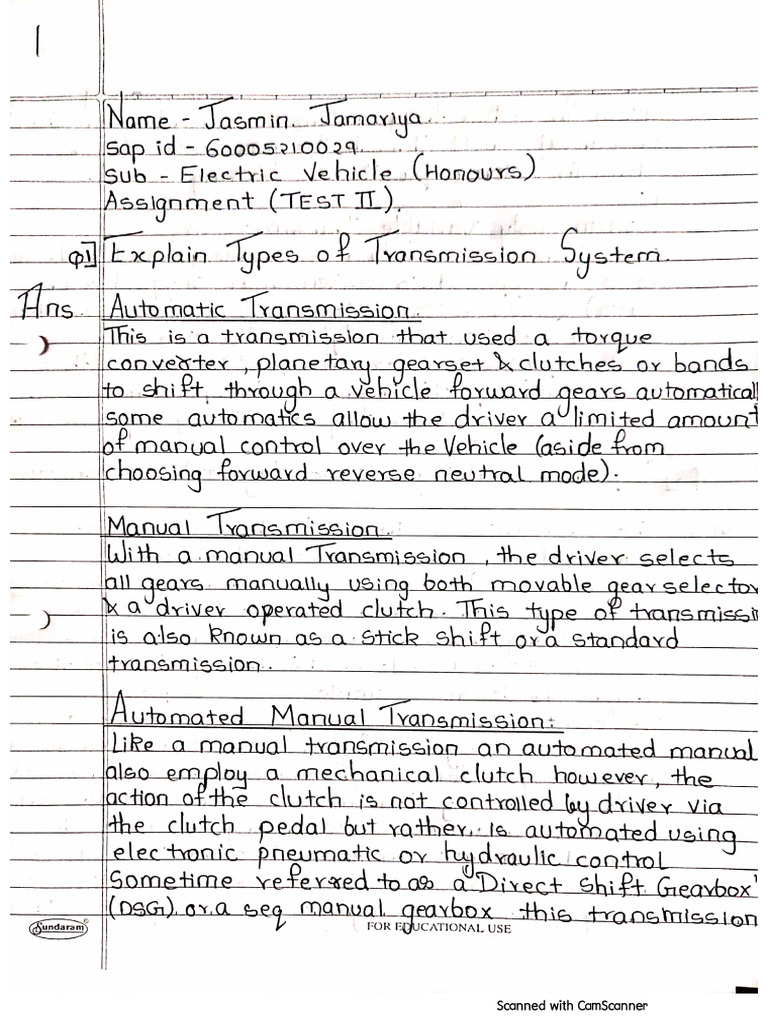 1
Name - Jasmin Jamariya
Sap id - 60005210029
Sub - Electric Vehicle (Honours)
Assignment (TEST II).
Q1] Explain Types of Transmission System
Ans Automatic Transmission.
This is a transmission that used a torque
converter, planetary gearset & clutches or bands
to shift through a vehicle forward gears automaticall
some automatics allow the driver a limited amount
of manual control over the Vehicle (aside from
choosing forward reverse neutral mode).
Manual Transmission.
With a manual Transmission, the driver selects
all gears manually using both movable gear selector
& a driver operated clutch. This type of transmissi
is also known as a stick shift or a standard
transmission.
Automated Manual Transmission:
Like a manual transmission an automated manual
also employ a mechanical clutch however, the
action of the clutch is not controlled by driver via
the clutch pedal but rather is automated using
electronic pneumatic or hydraulic control
Sometime referred to as a "Direct Shift Gearbox"
(DSG) or a seq manual gearbox this transmission
Sundaram
FOR EDUCATIONAL USE
Scanned with CamScanner